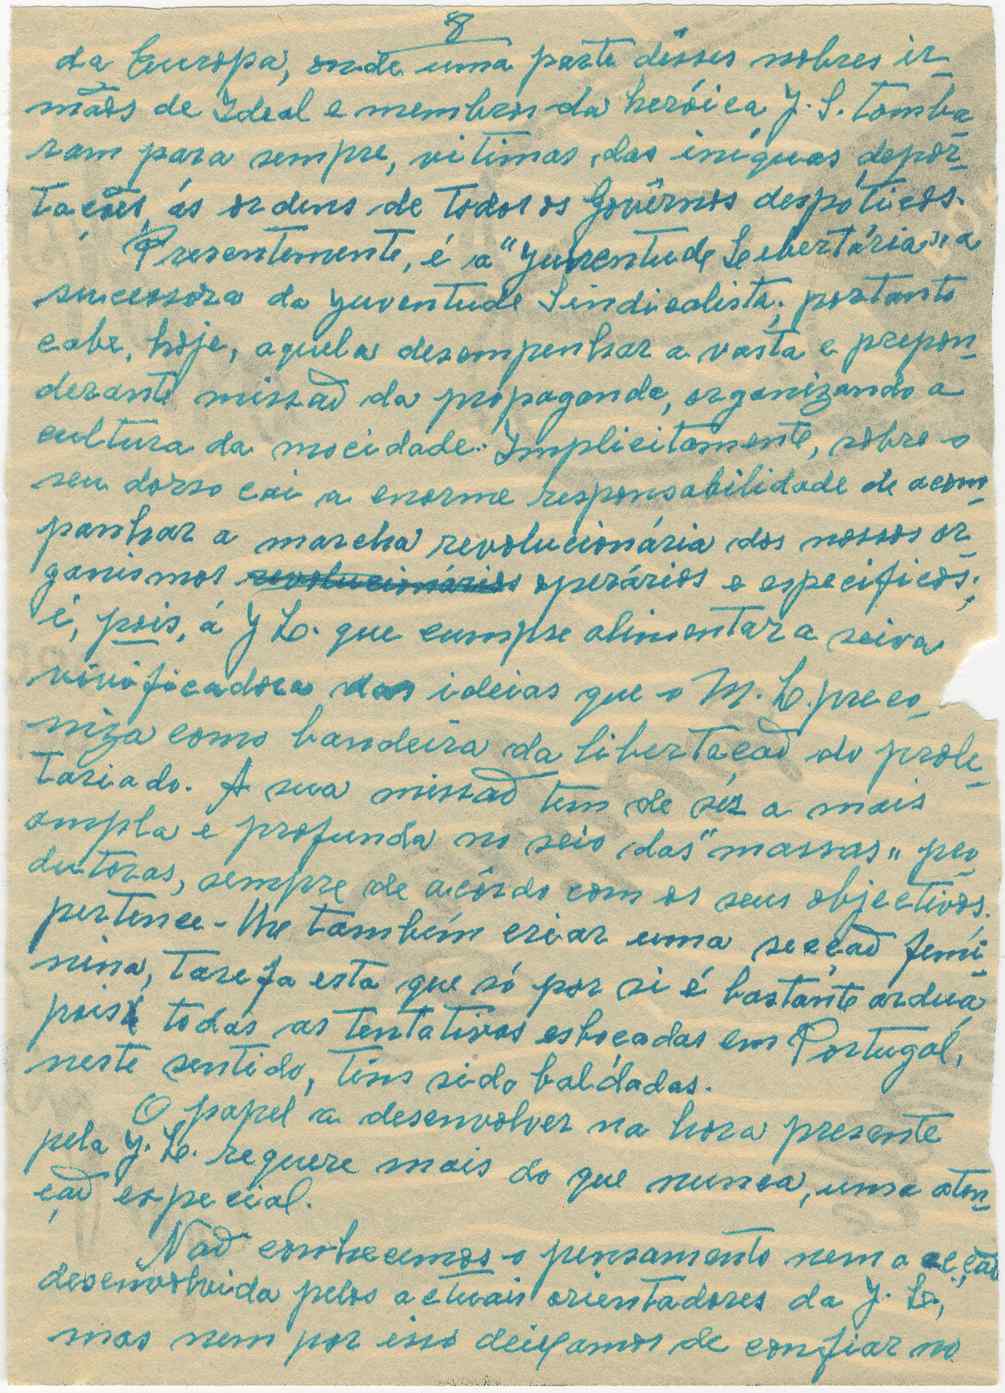 8
da Europa, onde uma parte dêsses nobres ir-
mãos de Ideal e membros da heróica J. S. tomba-
ram para sempre, vitimas das iníquas depor-
tações, ás ordens de todos os Govêrnos despóticos.
Presentemente, é a "Juventude Libertária" a
sucessora da Juventude Sindicalista; portanto
cabe, hoje, aquela desempenhar a vasta e prepon-
derante missaõ da propaganda, organizando a
cultura da mocidade. Implicitamente, sobre o
seu dorso cai a enorme responsabilidade de acom-
panhar a marcha revolucionária dos nossos or-
ganismos revolucionários operários e especificos;
é, pois, á J L. que cumpre alimentar a seiva
vivificadora das ideias que o M. L. preco-
niza como bandeira da libertaçaõ do prole-
tariado. A sua missaõ tem de ser a mais
ampla e profunda no seio das "massas" pro-
dutoras, sempre de acôrdo com os seus objectivos.
Pertence-lhe também criar uma secçaõ femi-
nina, tarefa esta que só por si é bastante ardua
pois todas as tentativas esboçadas em Portugal,
neste sentido, têns sido baldadas.
O papel a desenvolver na hora presente
pela J. L. requere mais do que nunca, uma aten-
çaõ especial.
Naõ conhecemos o pensamento nem a acçaõ
desenvolvida pelos actuais orientadores da J. L.,
mas nem por isso deixamos de confiar no